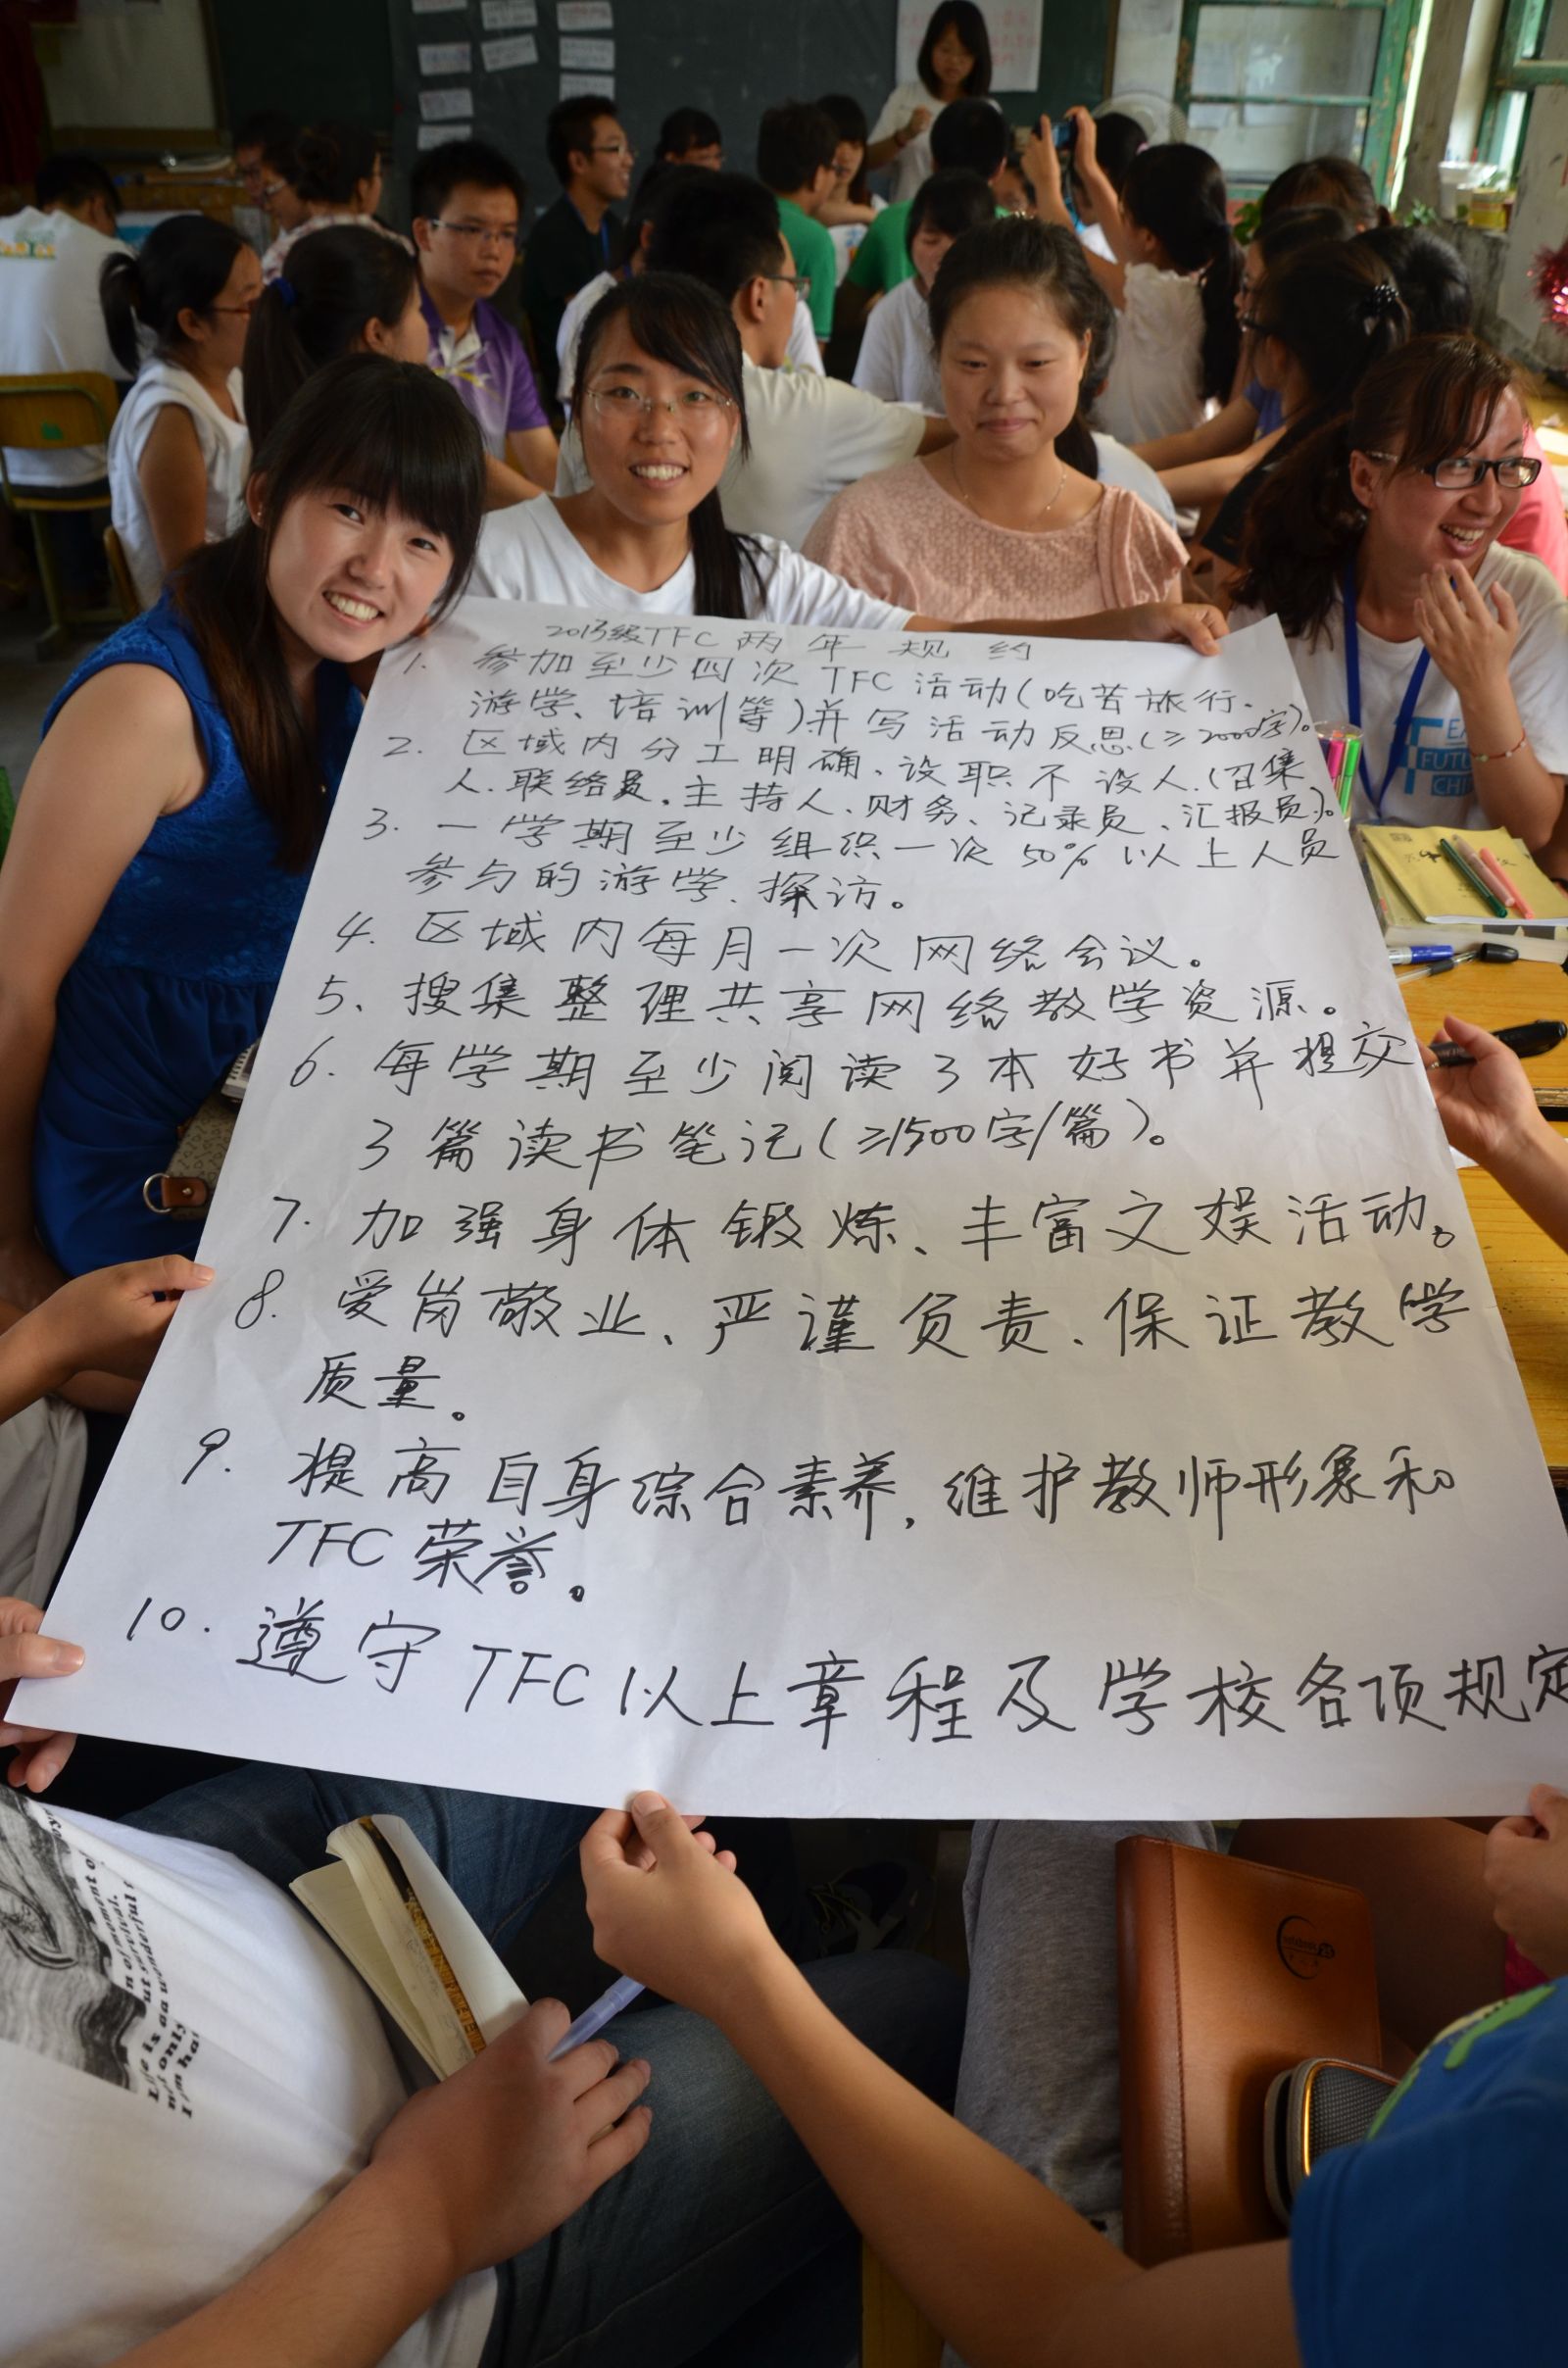 2013级TFC两年规约
1. 参加至少四次TFC活动(吃苦旅行、
游学、培训等)并写活动反思(≥2000字)。
2. 区域内分工明确、设职不设人.(召集
人.联络员.主持人、财务、记录员、汇报员)。
3. 一学期至少组织一次50%以上人员
参与的游学、探访。
4. 区域内每月一次网络会议。
5、搜集整理共享网络教学资源。
6. 每学期至少阅读3本好书并提交
3篇读书笔记(≥1500字/篇)。
7. 加强身体锻炼、丰富文娱活动。
8. 爱岗敬业、严谨负责、保证教学
质量。
9. 提高自身综合素养,维护教师形象和
TFC荣誉。
10. 遵守TFC以上章程及学校各项规定